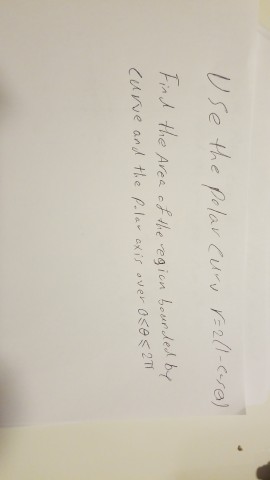 Use the polar curv r=2(1-cosθ)
Find the Area of the region bounded by
curve and the polar axis over 0≤θ≤2π